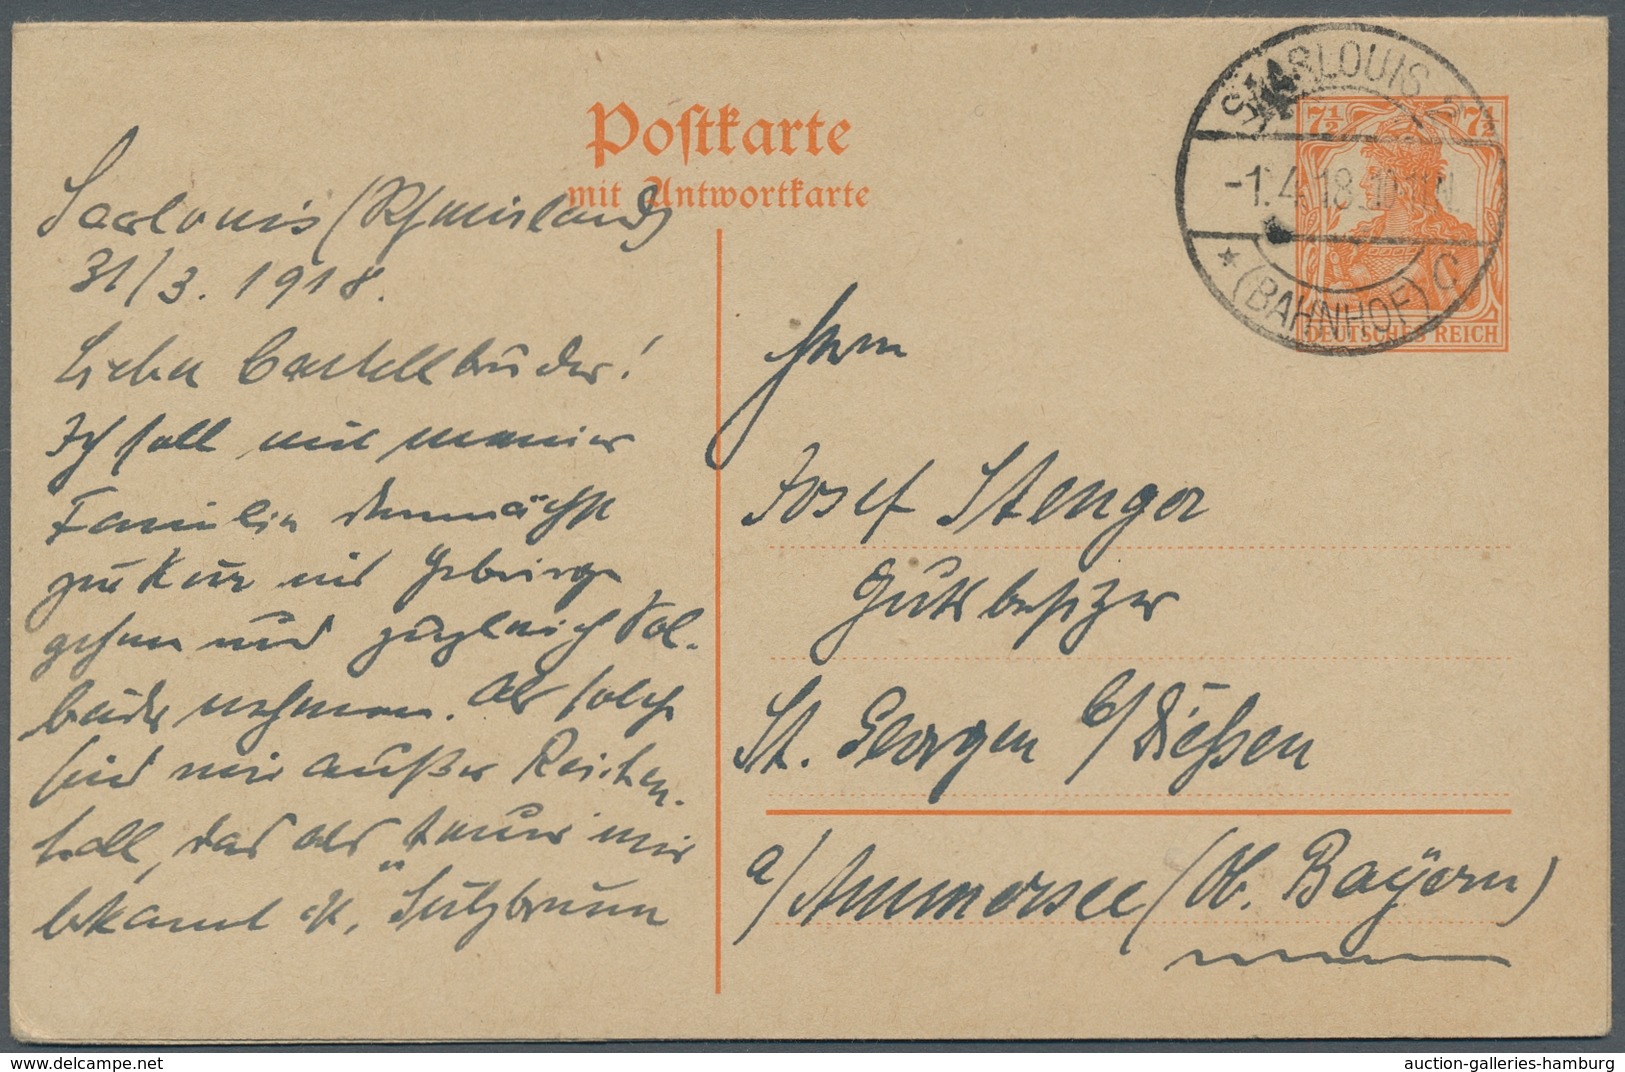 Postkarte
mit Antwortkarte
SAARLOUIS 2
-1.4.18. 10-11N.
* (BAHNHOF) C
7½ 7½
DEUTSCHES REICH
Saarlouis (Rheinland)
31/3. 1918.
Lieber Cartellbruder!
Ich soll mit meiner
Familie demnächst
zur Kur ins Gebirge
gehen und zugleich Sol-
bäder nehmen. Als solche
sind mir außer Reichen-
hall, das als teuer mir
bekannt ist, „Sulzbrunn
Herrn
Josef Stenger
Gutsbesitzer
St. Georgen b/ Dießen
a/ Ammersee (Ob. Bayern)
auction-galleries-hamburg